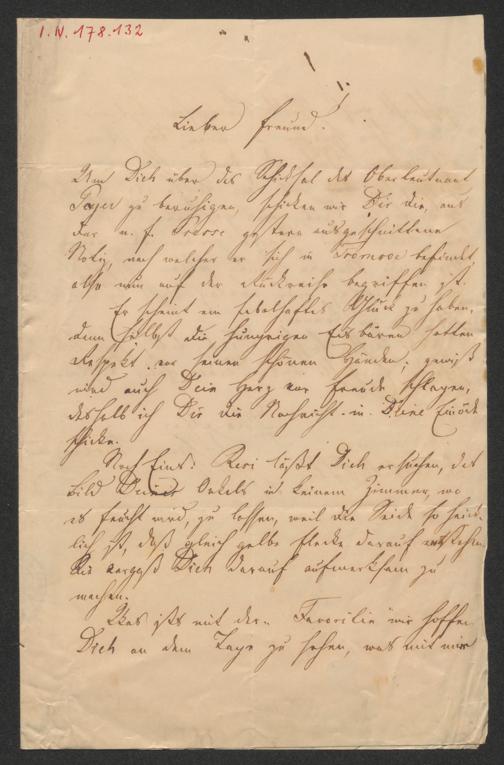 I.N. 178.132
Lieber Freund!
Um Dich über das Schicksal des Oberleutnant
Payer zu beruhigen, schicken wir Dir die, aus
der n. f. Presse gestern ausgeschnittene
Notiz, nach welcher er sich in Tromsoe befindet
also nun auf der Rückreise begriffen ist.
Er scheint ein fabelhaftes Glück zu haben,
denn selbst die hungrigen Eisbären hatten
Respekt vor seinen schönen Händen; gewiß
wird auch Dein Herz vor Freude schlagen,
deshalb ich Dir die Nachricht in Deine Einöde
schicke.
Noch Eins: Resi läßt Dich ersuchen, das
Bild Deines Onkels in keinem Zimmer, wo
es feucht wird, zu lassen, weil die Seide so
lich ist, daß gleich gelbe Flecke darauf entstehen
Sie vergaß Dich darauf aufmerksam zu
machen.
Was ists mit der "Favoritin" wir hoffen
Dich an dem Tage zu sehen, was mit mir